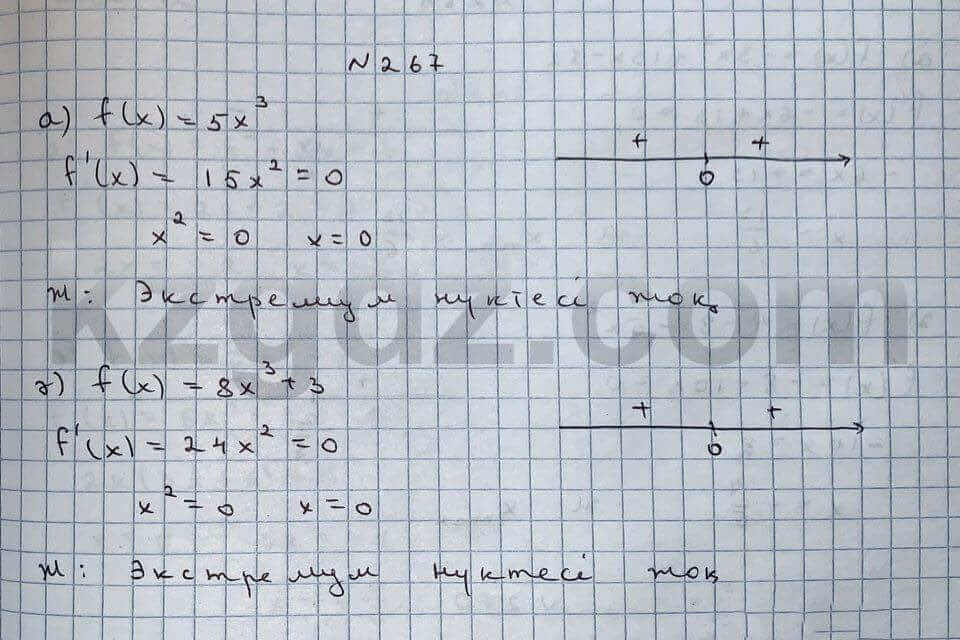 N267
а) f(x) = 5x³
f'(x) = 15x² = 0
+ +
0
x² = 0 x = 0
Ж: Экстремум нүктесі жоқ
kzgdz.com
ә) f(x) = 8x³ + 3
f'(x) = 24x² = 0
+ +
0
x² = 0 x = 0
Ж: Экстремум нүктесі жоқ